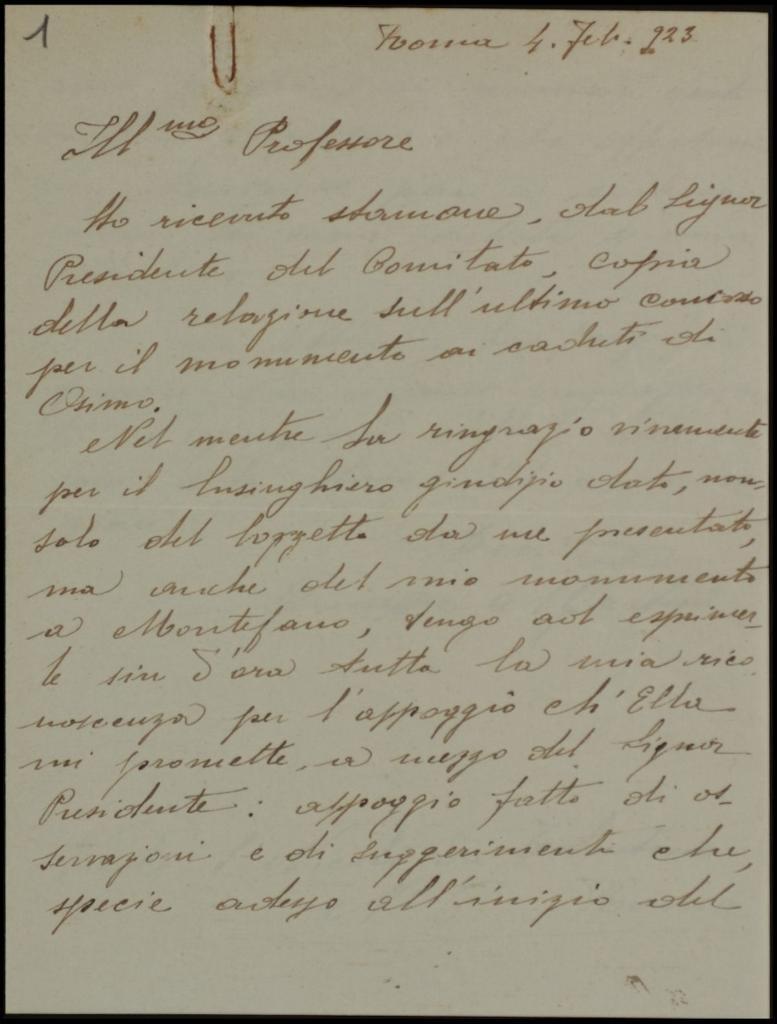 1
Roma 4. Feb. 923
Ill mo Professore
Ho ricevuto stamane, dal Signor
Presidente del Comitato, copia
della relazione sull'ultimo concorso
per il monumento ai caduti di
Osimo.
Nel mentre La ringrazio vivamente
per il lusinghiero giudizio dato, non
solo del bozzetto da me presentato,
ma anche del mio monumento
a Montefano, tengo ad esprimer-
le sin d'ora tutta la mia rico
noscenza per l'appoggio ch'Ella
mi promette, a mezzo del Signor
Presidente: appoggio fatto di os-
servazioni e di suggerimenti che,
specie adesso all'inizio del